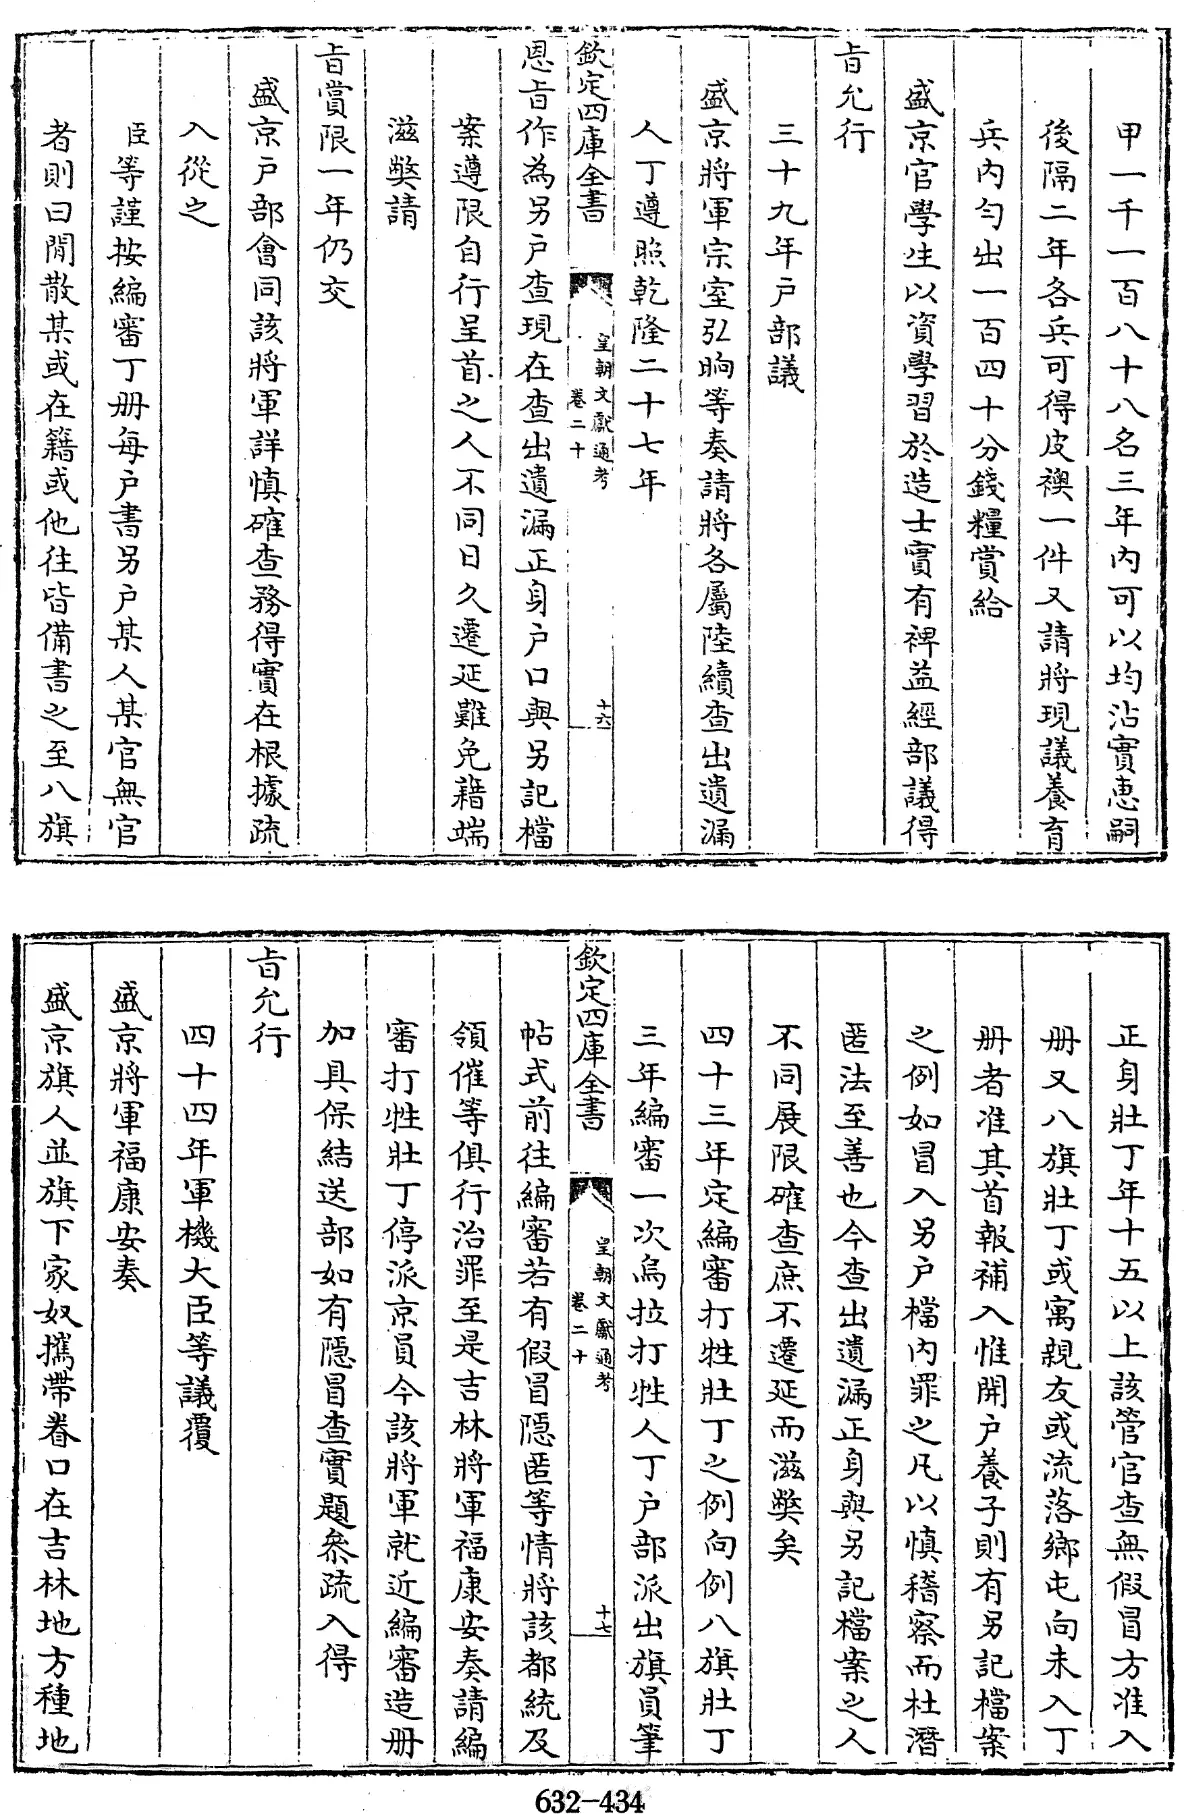 甲一千一百八十八名三年内可以均沾實恵嗣
後隔二年各兵可得皮襖一件又請將現議養育
兵内勻出一百四十分錢糧賞給
盛京官學生以資學習於造士實有裨益經部議得
旨允行
三十九年戸部議
盛京將軍宗室弘晌等奏請將各屬陸續查出遺漏
人丁遵照乾隆二十七年
欽定四庫全書
皇朝文獻通考
卷二十
十六
恩旨作為另戸查現在查出遺漏正身戸口與另記檔
案遵限自行呈首之人不同日久遷延難免藉端
滋弊請
旨賞限一年仍交
盛京戸部會同該將軍詳慎確查務得實在根據疏
入從之
臣等謹按編審丁册每戸書另戸某人某官無官
者則曰閒散某或在籍或他往皆備書之至八旗
正身壯丁年十五以上該管官查無假冒方准入
册又八旗壯丁或寓親友或流落鄉屯向未入丁
册者准其首報補入惟開戸養子則有另記檔案
之例如冒入另戸檔内罪之凡以慎稽察而杜潛
匿法至善也今查出遺漏正身與另記檔案之人
不同展限確查庶不遷延而滋弊矣
四十三年定編審打牲壯丁之例向例八旗壯丁
三年編審一次烏拉打牲人丁戸部派出旗員筆
欽定四庫全書
皇朝文獻通考
卷二十
十七
帖式前往編審若有假冒隱匿等情將該都統及
領催等俱行治罪至是吉林將軍福康安奏請編
審打牲壯丁停派京員今該將軍就近編審造册
加具保結送部如有隱冒查實題參疏入得
旨允行
四十四年軍機大臣等議覆
盛京將軍福康安奏
盛京旗人並旗下家奴攜帶眷口在吉林地方種地
632-434